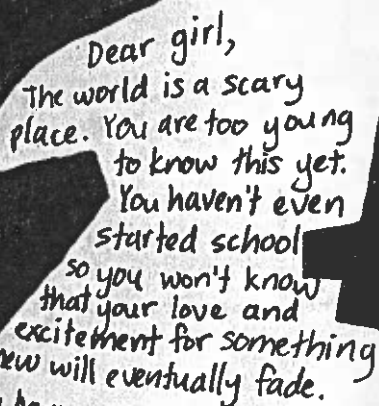 Dear girl,
The world is a scary
place. You are too young
to know this yet.
You haven't even
started school
so you won't know
that your love and
excitement for something
new will eventually fade.